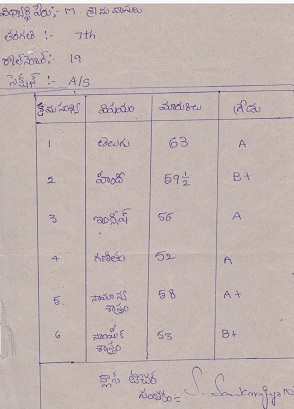 విద్యార్థి పేరు;- M. శ్రీనివాసులు
తరగతి :- 7th
రోల్ నెంబర్:- 19
సెక్షన్ :- A/S
క్రమ సంఖ్య విషయం మార్కులు గ్రేడు
1 తెలుగు 63 A
2 హిందీ 59½ B+
3 ఇంగ్లీష్ 56 A
4 గణితం 52 A
5. సామాన్య శాస్త్రం 58 A+
6 సాంఘీక శాస్త్రం 53 B+
క్లాస్ టీచర్
సంతకం:-